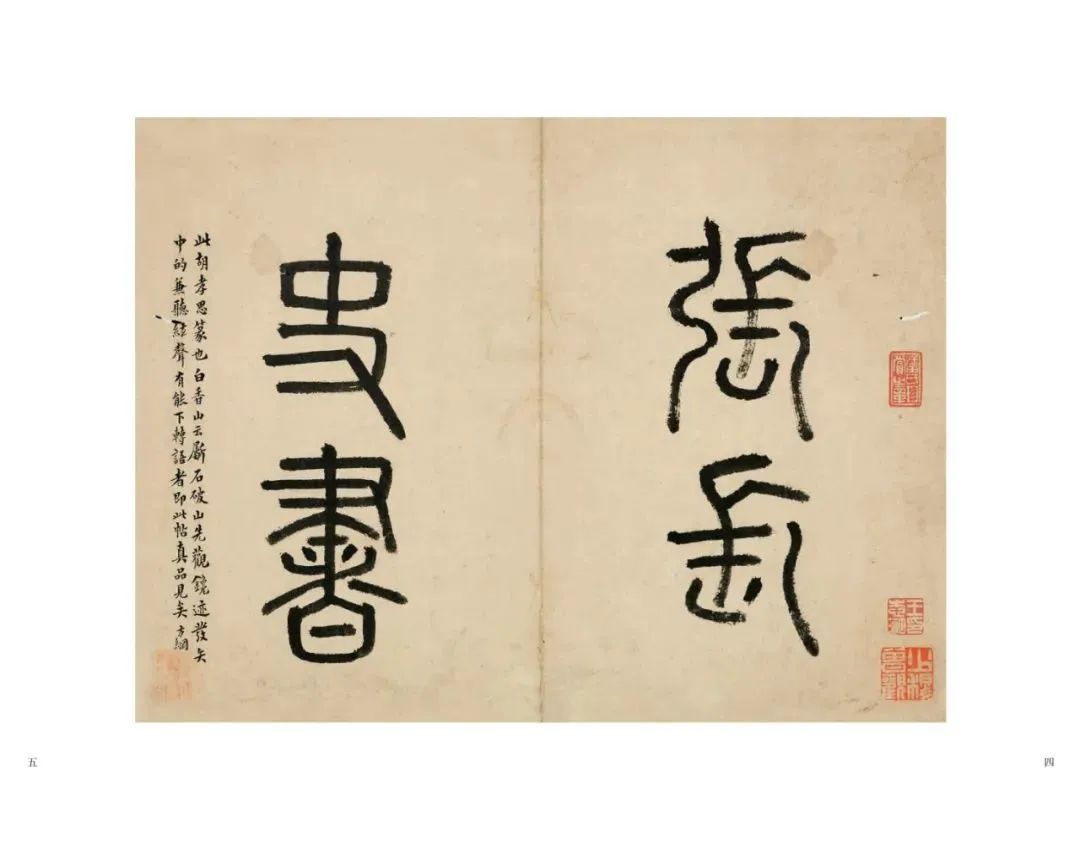 張長
史書
此胡孝思篆也白香山云斸石破山先觀鑱迹發矢
中的兼聽絃聲有能下轉語者即此帖真品見矣 方綱
四
五